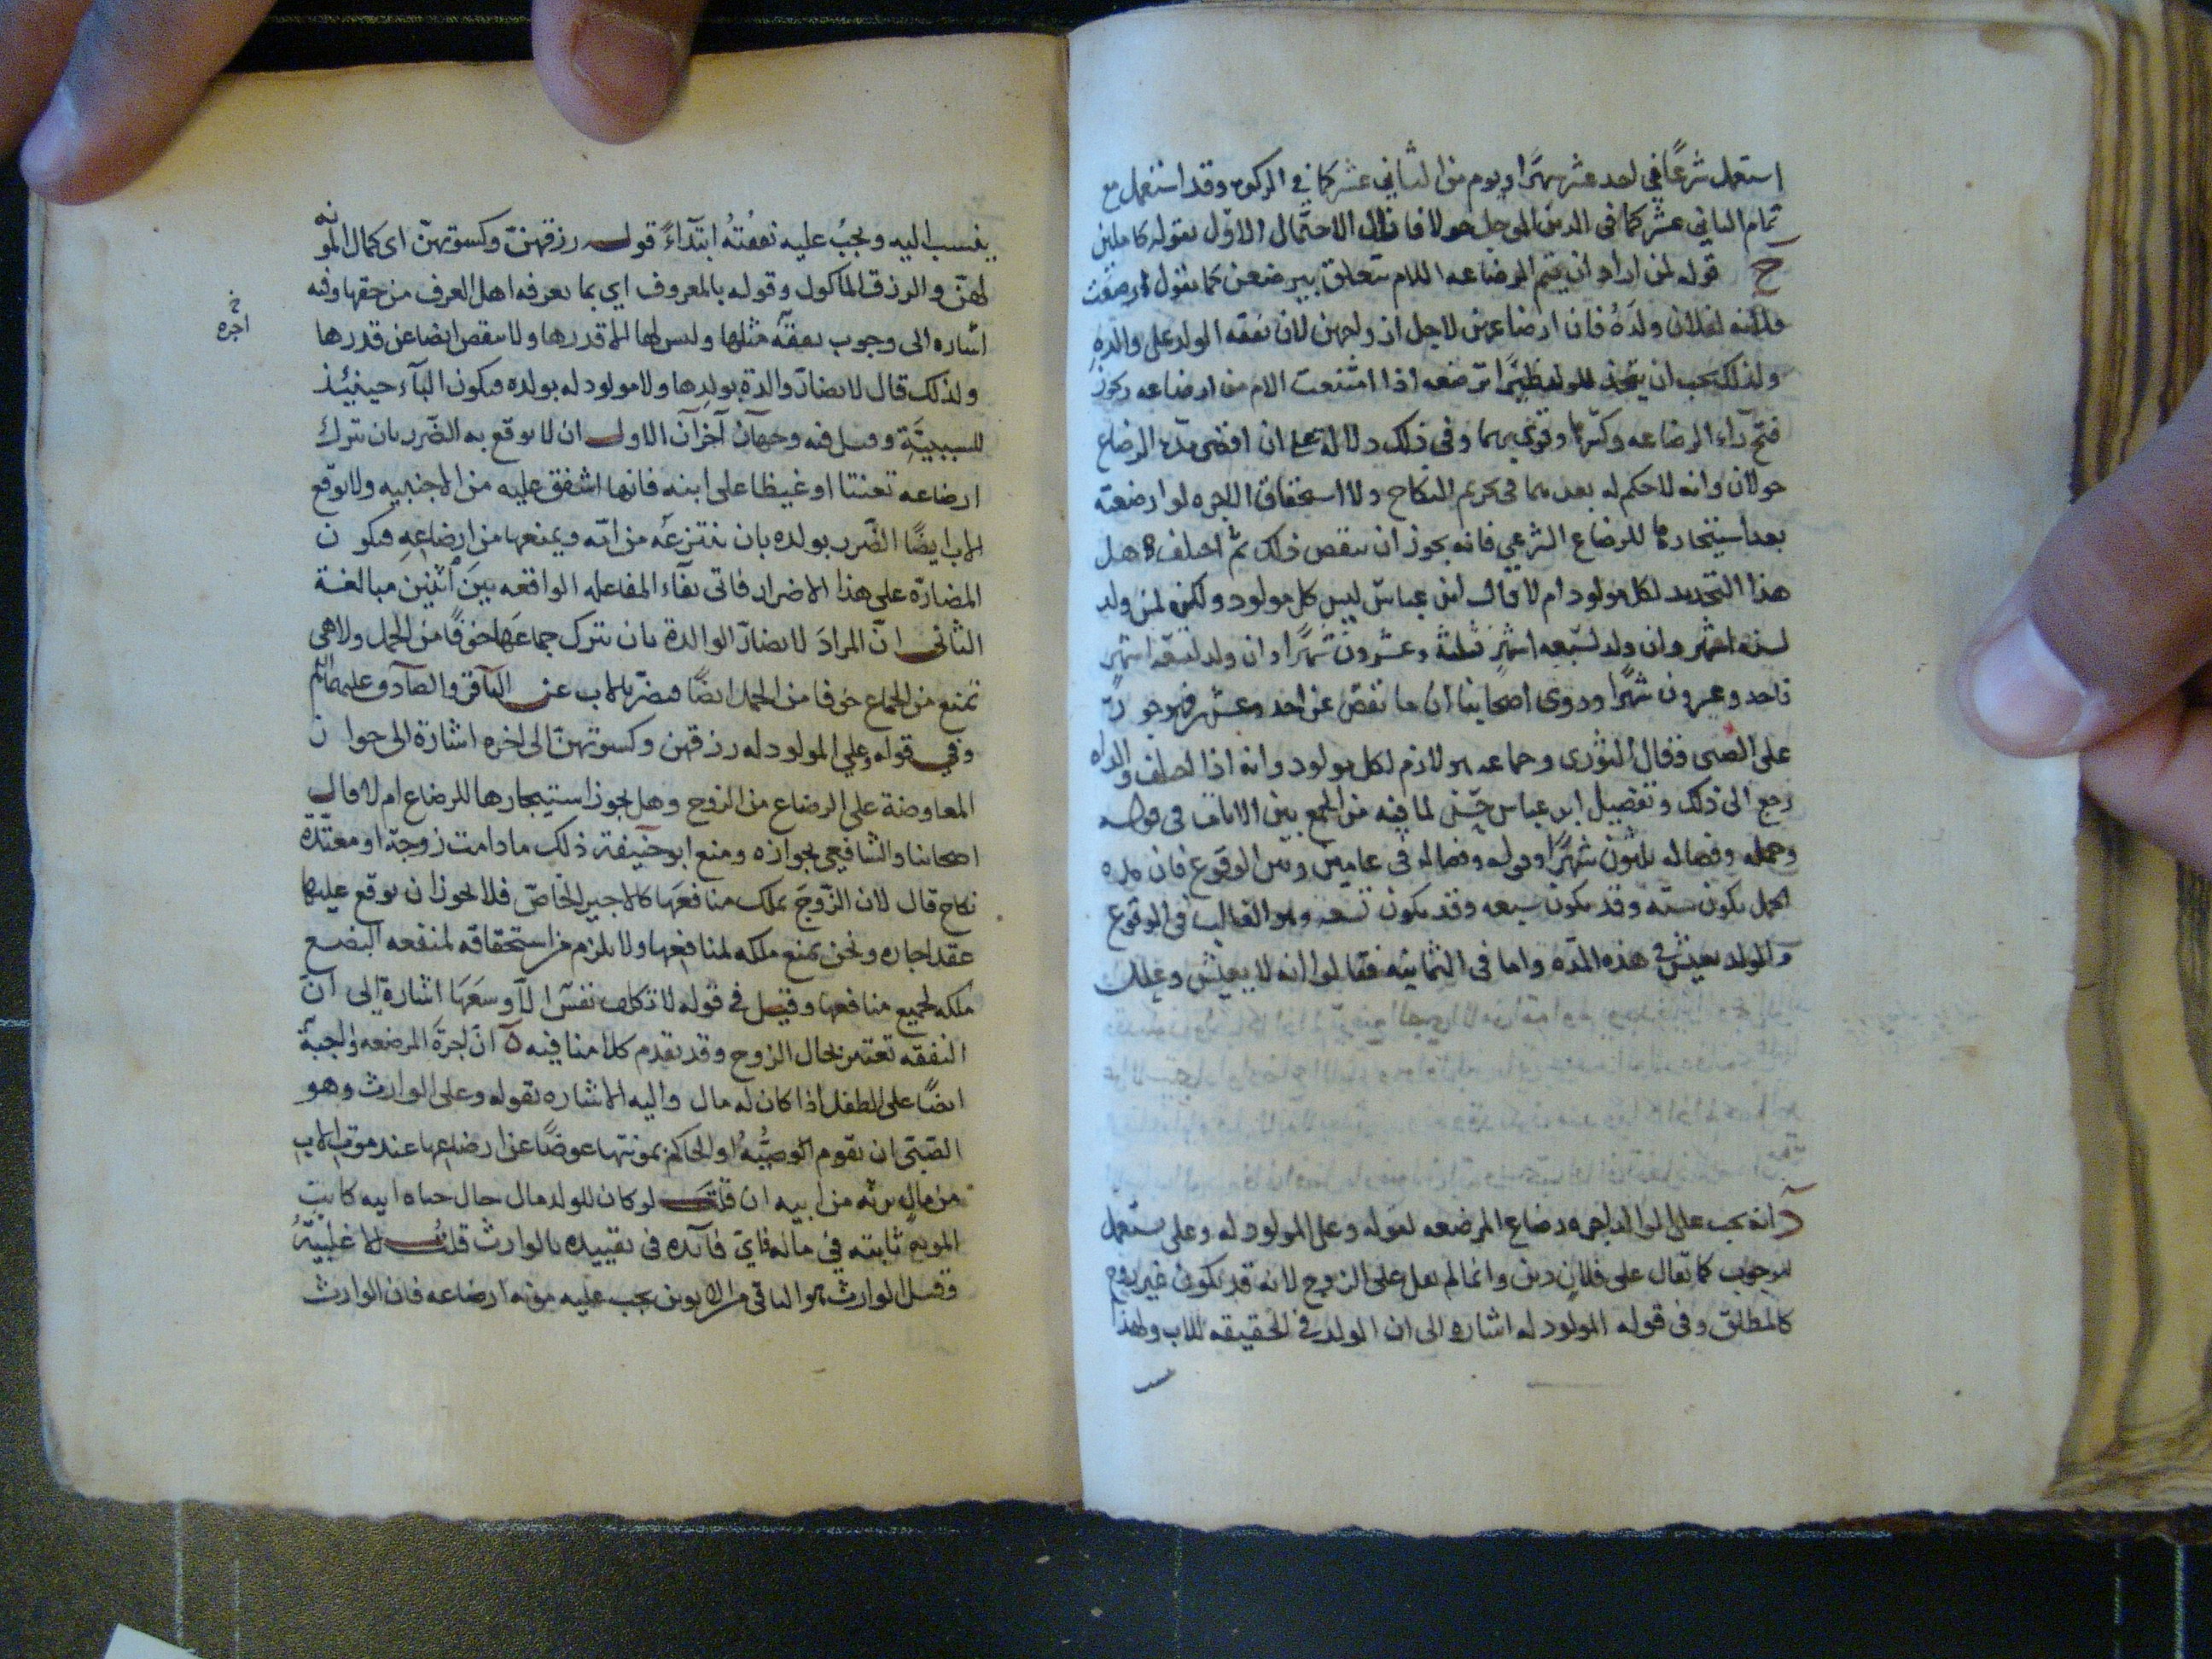 استعمل شرعًا في احد عشر شهرًا ويوم من الثاني عشر كما في الزكوة وقد استعمل مع
تمام الثاني عشر كما في الدين المؤجل حولا فازال الاحتمال الاول بقوله كاملين
ج قوله لمن اراد ان يتم الرضاعه اللام تتعلق بيرضعن كما تقول ارضعت
فلانه لفلان ولده فان ارضاعهن لاجل ازواجهن لان نفقه الولد على والده
ولذلك يجب ان يتخذ للولد ظئرًا ترضعه اذا امتنعت الام من ارضاعه ويجوز
فتح راء الرضاعه وكسرها وقرئ بهما وفي ذلك دلالة على ان اقصى مدة الرضاع
حولان وانه لاحكم له بعدهما في تحريم النكاح ولا استحقاق الاجره لو ارضعته
بعد استيجارها للرضاع الشرعي فانه يجوز ان ينقص ذلك ثم اختلف هل
هذا التحديد لكل مولود ام لا قال ابن عباس ليس كل مولود ولكن لمن ولد
لسته اشهر وان ولد لسبعه اشهر فثلثة وعشرون شهرًا وان ولد لتسعة اشهر
فاحد وعشرون شهرًا وروى اصحابنا ان ما نقص عن احد وعشرين فهو جور
على الصبى وقال الثورى وجماعه هو لازم لكل مولود وانه اذا اختلف والداه
رجع الى ذلك وتفصيل ابن عباس حسن لما فيه من الجمع بين الايات في قوله
وحمله وفصاله ثلثون شهرًا وقوله وفصاله في عامين وبين الوقوع فان مده
الحمل يكون ستة وقد يكون سبعه وقد يكون تسعه وهو الغالب في الوقوع
والولد يعيش في هذه المدة واما في الثمانيه فقالوا انه لا يعيش وعلل
د انه يجب على الوالد اجره رضاع المرضعه لقوله وعلى المولود له وعلى يستعمل
للوجوب كما يقال على فلان دين وانما لم يقل على الزوج لانه قد يكون غير زوج
كالمطلق وفي قوله المولود له اشاره الى ان الولد في الحقيقه للاب ولهذا
ينسب اليه ويجب عليه نفقته ابتداءً قوله رزقهن وكسوتهن اى كمال المونه
لهن والرزق الماكول وقوله بالمعروف اي بما يعرفه اهل العرف من حقها وفيه
خ
اجره
اشاره الى وجوب نفقة مثلها وليس لها الا قدرها ولا ينقص ايضا عن قدرها
ولذلك قال لا تضار والدة بولدها ولا مولود له بولده فيكون الباء حينئذ
للسببيّة وقيل فيه وجهان آخران الاول ان لا توقع به الضرر بان تترك
ارضاعه تعنتا او غيظا على ابنه فانها اشفق عليه من الاجنبيه ولا يوقع
الاب ايضًا الضّرر بولده بان ينتزعه من امّه ويمنعها من ارضاعِه فيكون
المضارّة على هذا الاضرار فاتى بناء المفاعله الواقعه بين اثنين مبالغة
الثاني انّ المراد لا تضارّ الوالدة بان تترك جماعها خوفًا من الحمل ولا هى
تمتنع من الجماع خوفا من الحمل ايضًا فيضر بالاب عن الباقر والصادق عليهما السلم
وفي قوله وعلى المولود له رزقهن وكسوتهن الى اخره اشارة الى جواز
المعاوضة على الرضاع من الزوج وهل يجوز استيجارها للرضاع ام لا قال
اصحابنا والشافعي بجوازه ومنع ابو حنيفة ذلك ما دامت زوجة او معتدّة
نكاح قال لان الزّوج يملك منافعها كالاجير الخاصّ فلا يجوز ان يوقع عليها
عقد اجاره ونحن نمنع ملكه لمنافعها ولا يلزم من استحقاقه لمنفعه البضع
ملكه لجميع منافعها وقيل في قوله لا تكلف نفس الا وسعها اشارة الى ان
النفقه تعتبر بحال الزوج وقد تقدم كلامنا فيه ه ان اجرة المرضعه واجبة
ايضًا على الطفل اذا كان له مال واليه الاشاره بقوله وعلى الوارث وهو
الصّبى ان يقوم الوصيّ او الحاكم بمونتها عوضًا عن ارضاعها عند موت الاب
من مال يرثه من ابيه ان قلت لو كان للولد مال حال حياه ابيه كانت
المونة ثابته في ماله فاى فائده في تقييده بالوارث قلت لا غلبيّة
وقيل الوارث هو الباقي من الابوين يجب عليه مونه ارضاعه فان الوارث